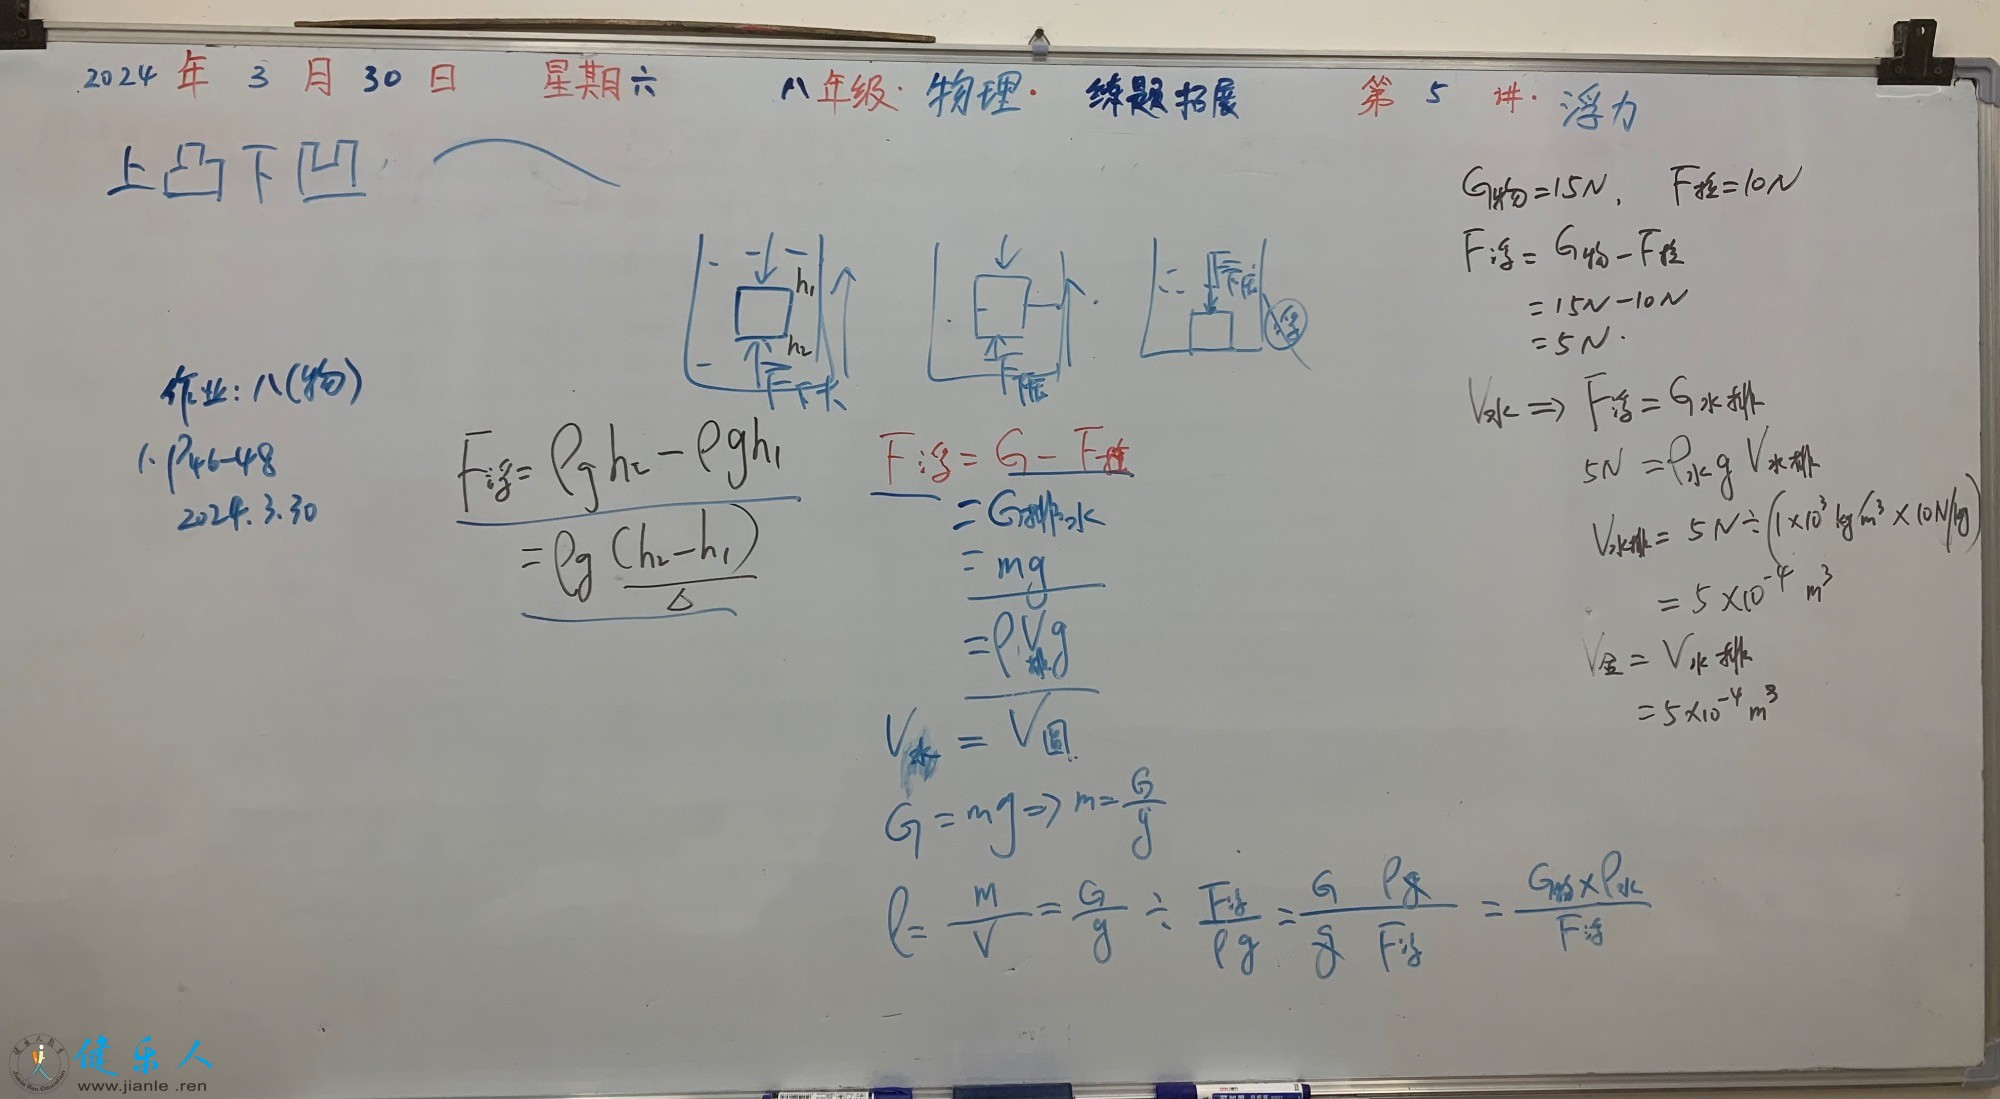 2024 年 3 月 30 日 星期六 八年级·物理· 练题拓展 第 5 讲·浮力
上凸下凹
h₁
h₂
F下
F下压
浮
作业:八(物)
1. P46-48
2024.3.30
F浮=ρgh₂-ρgh₁
=ρg(h₂-h₁)
F浮=G-F拉
=G排水
=mg
=ρV排g
V水=V固
G=mg⇒m=G/g
ρ=m/V=G/g÷F浮/ρg=G ρg/g F浮=G物×ρ水/F浮
G物=15N, F拉=10N
F浮=G物-F拉
=15N-10N
=5N.
V水⇒F浮=G水排
5N=ρ水gV水排
V水排=5N÷(1×10³kg/m³×10N/kg)
=5×10⁻⁴m³
V金=V水排
=5×10⁻⁴m³
健乐人
www.jianle.ren